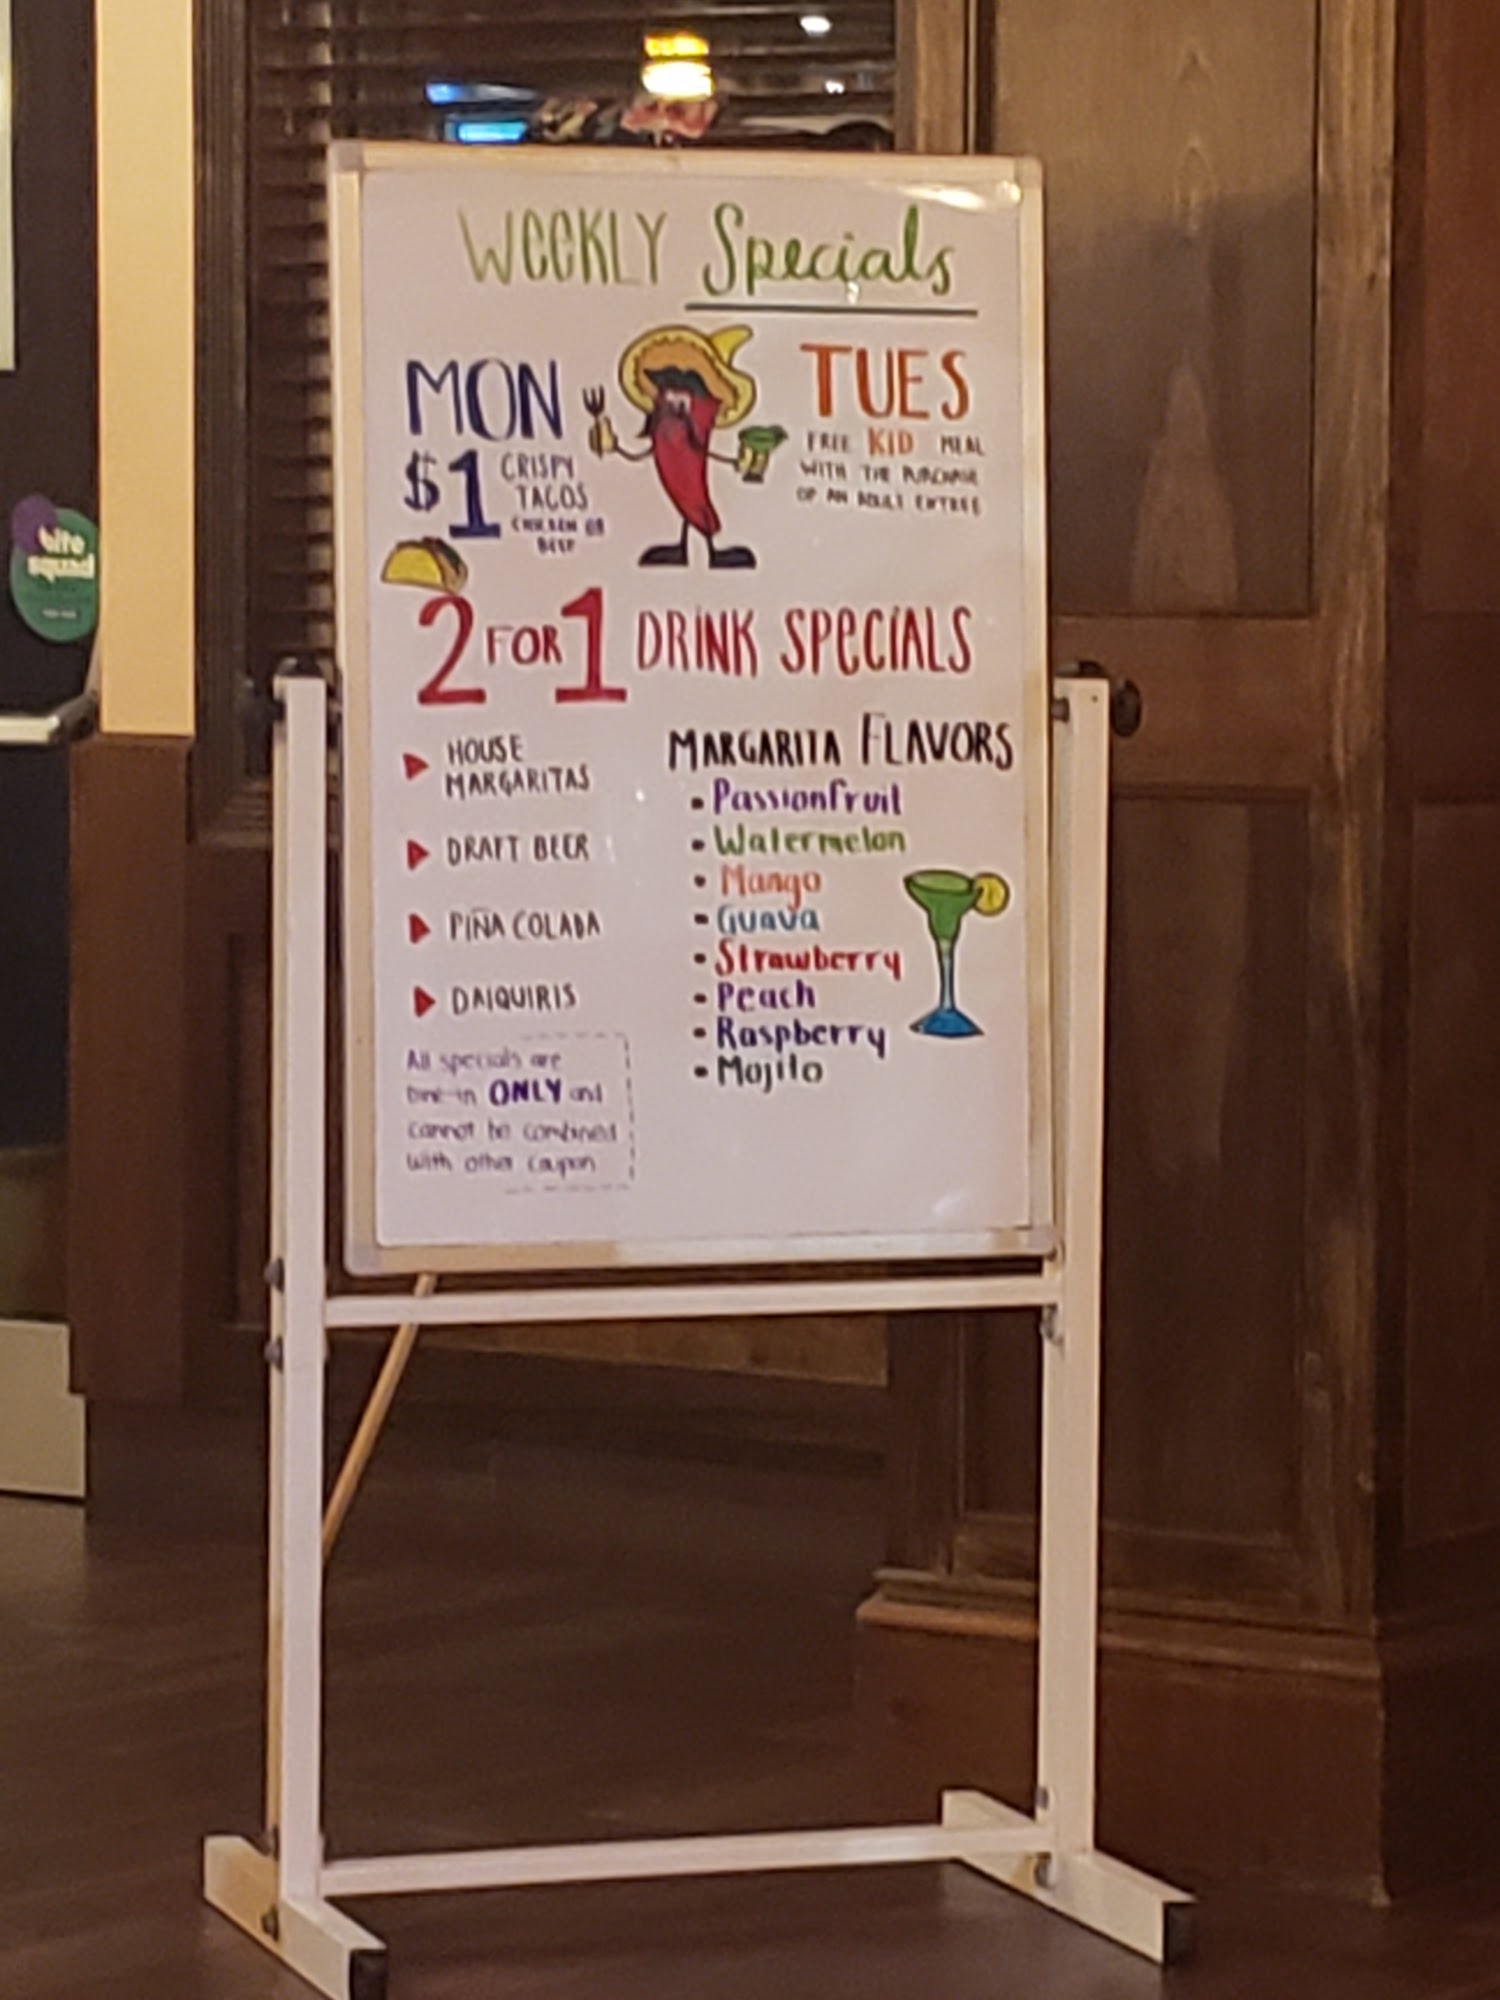 WEEKLY Specials
MON
$1 CRISPY
TACOS
CHICKEN OR
BEEF
TUES
FREE KID MEAL
WITH THE PURCHASE
OF AN ADULT ENTREE
2 FOR 1 DRINK SPECIALS
HOUSE
MARGARITAS
DRAFT BEER
PIÑA COLADA
DAIQUIRIS
MARGARITA FLAVORS
• Passionfruit
• Watermelon
• Mango
• Guava
• Strawberry
• Peach
• Raspberry
• Mojito
All specials are
Dine-in ONLY and
cannot be combined
with other coupon
bite
squad